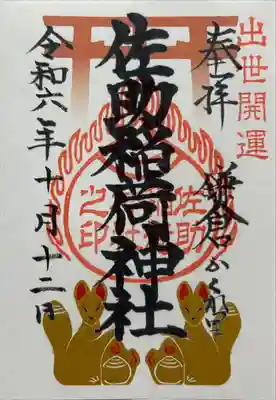 出世開運
奉拝
鎌倉かくれ里
佐助稲荷神社
佐助稲荷神社之印
令和六年十月十二日